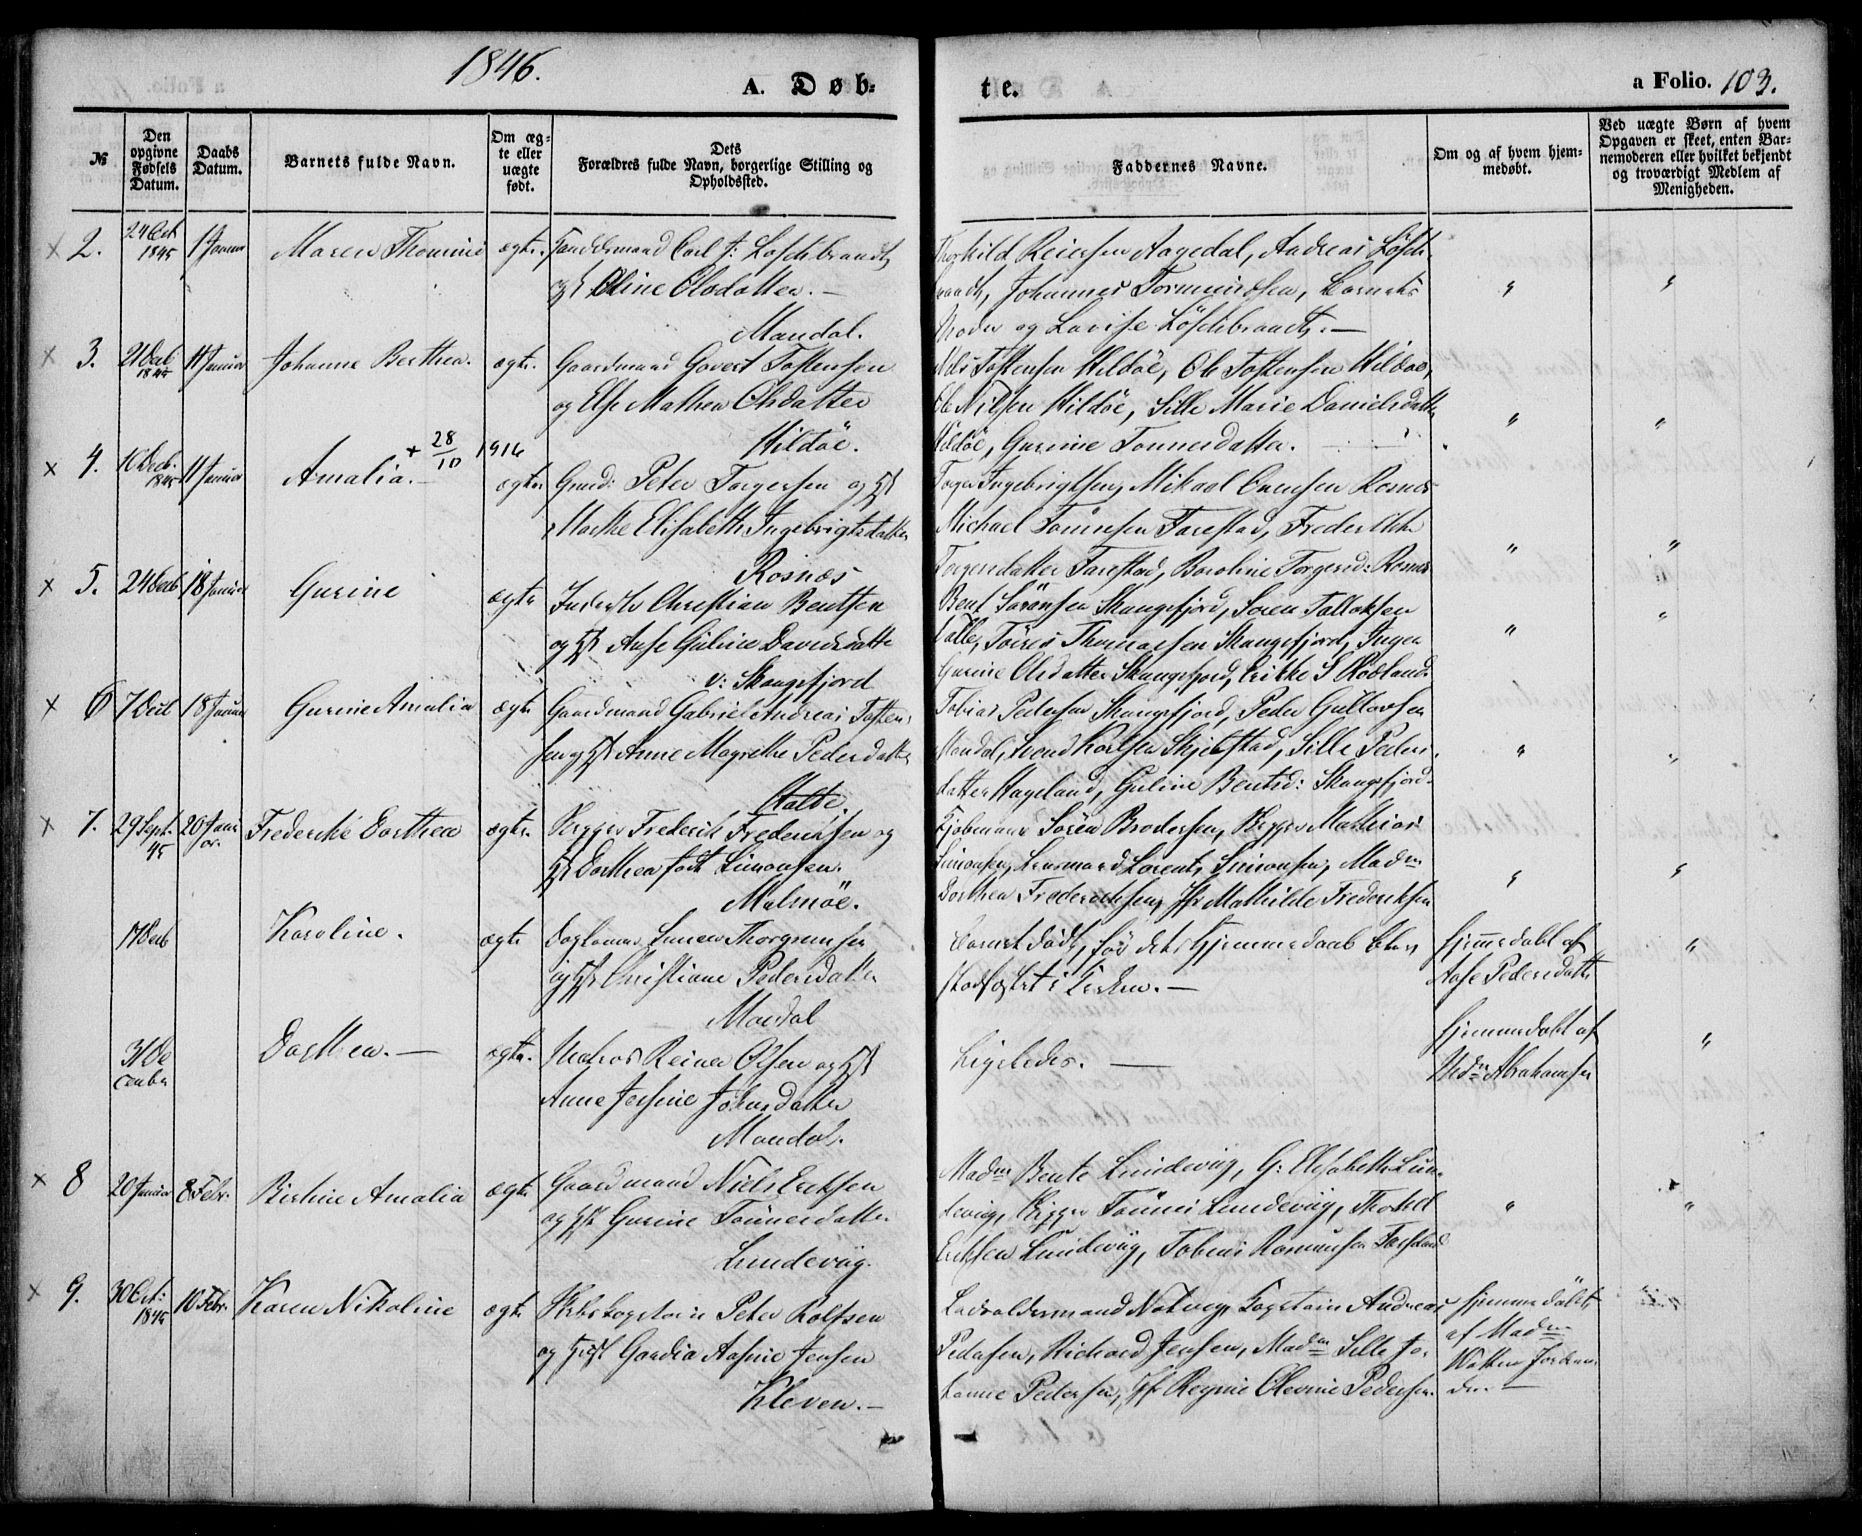 1846.
A. Døb=
te.
a Folio. 103.
№
Den opgivne Fødsels Datum.
Daabs Datum.
Barnets fulde Navn.
Om ægte eller uægte født.
Dets Forældres fulde Navn, borgerlige Stilling og Opholdssted.
Faddernes Navne.
Om og af hvem hjemmedøbt.
Ved uægte Børn af hvem Opgaven er skeet, enten Barnemoderen eller hvilket bekjendt og troværdigt Medlem af Menigheden.
× 2. 24 Oct 1845 1 Januar Maren Thomine ægte. Carl J: Löschbrandt,
og H Oline Olsdatter. —
Mandal.
Thorkild Reiersen Aagedal, Andreas Lösch-
brandt, Johannes Tormundsen, Barnets
Moder og Lovise Löschbrandt. —
× 3. 21 Decb 1845 11 Januar Johanne Berthea. ægte. Gaardmand Govert Tostensen
og Else Mathea Olsdatter
Hildöe.
Nils Tostensen Hildöe, Ole Tostensen Hildöe,
Ole Nilsen Hildöe, Sille Marie Danielsdatter
Hildöe, Gurine Tönnesdatter.
× 4. 16 Decb. 1845 11 Januar Amalia. — + 28/10 1916 ægte Peter Torgersen og H
Marthe Elisabeth Ingebrigtsdatter
Rosnæs
Torger Ingebrigtsen, Mikael Evensen Rosnes
Michael Tönnesen Farestad, Frederikke
Torgersdatter Farestad, Boroline Torgersd: Rosnes
× 5. 24 Decb 18 Januar Gurine ægte Inderste Christian Bentsen
og H Aase Guline Davidsdatter
v: Skangefjord
Bent Sörensen Skangefjord, Sören Tallaksen
Valle, Tönnes Thomassen Skangefjord, Inger
Gurine Olsdatter Skangefjord,
× 6 7 Decb 18 Januar Gurine Amalia ægte Gaardmand Gabriel Andreas Tosten-
sen og H Anne Magrethe Pedersdatter
Tobias Pedersen Skangefjord, Peder Gullovsen
Mandal, Svend Karlsen Skjebstad, Sille Peders
datter Hageland, Guline Bentsd: Skangefjord.
× 7. 29 Sept. 45 20 Janu ar. Frederike Dorthea ægte. Skipper Frederik Frederiksen og
H Dorthea født Simonsen.
Malmöe.
Kjöbmand Sören Brodersen, Skipper Mathias
Simonsen, Lensmand Lorents Simonsen, Madm
Dorthea Frederiksen, Jfr Mathilde Frederiksen
17 Decb Karoline. ægte Thorgrimsen
og H Christiane Pedersdatter
Mandal
Barnet død, før dets Hjemmedaab blev
stadfæstet i Kirken. —
Hjemmedøbt af
Aase Pedersdatter
31 De cember Dorthea. — ægte. Matros Reiner Olsen og H
Anne Jensine Johnsdatter
Mandal.
Ligeledes. —
Hjemmedøbt af
Madm Abrahamsen
× 8 20 Januar 8 Febr. Bertine Amalia ægte Gaardmand Niels Eriksen
og H Gurine Tönnesdatter
Lundevüg.
Madm Bente Lundevüg, G: Elisabeth Lun-
devüg, Skipper Tönnes Lundevüg, Thorkel
Eriksen Lundevüg, Tobias Rasmusen Farstad
× 9. 30 Oct: 1845 10 Febr. Karen Nikoline ægte Skibskaptain Peter Rolfsen
og Jensen
Kleven. —
Lodsoldermand Natvig, Kaptain Andreas
Pedersen, Richard Jensen, Madm Sille Jo-
hanne Pedersen, Jfr Regine Olevine Pedersen.
Hjemmedøbt
af Madm